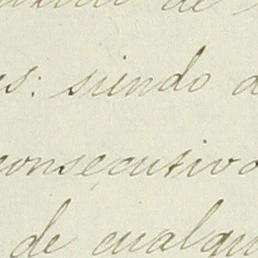 de
siendo
consecutivo
de cualqui